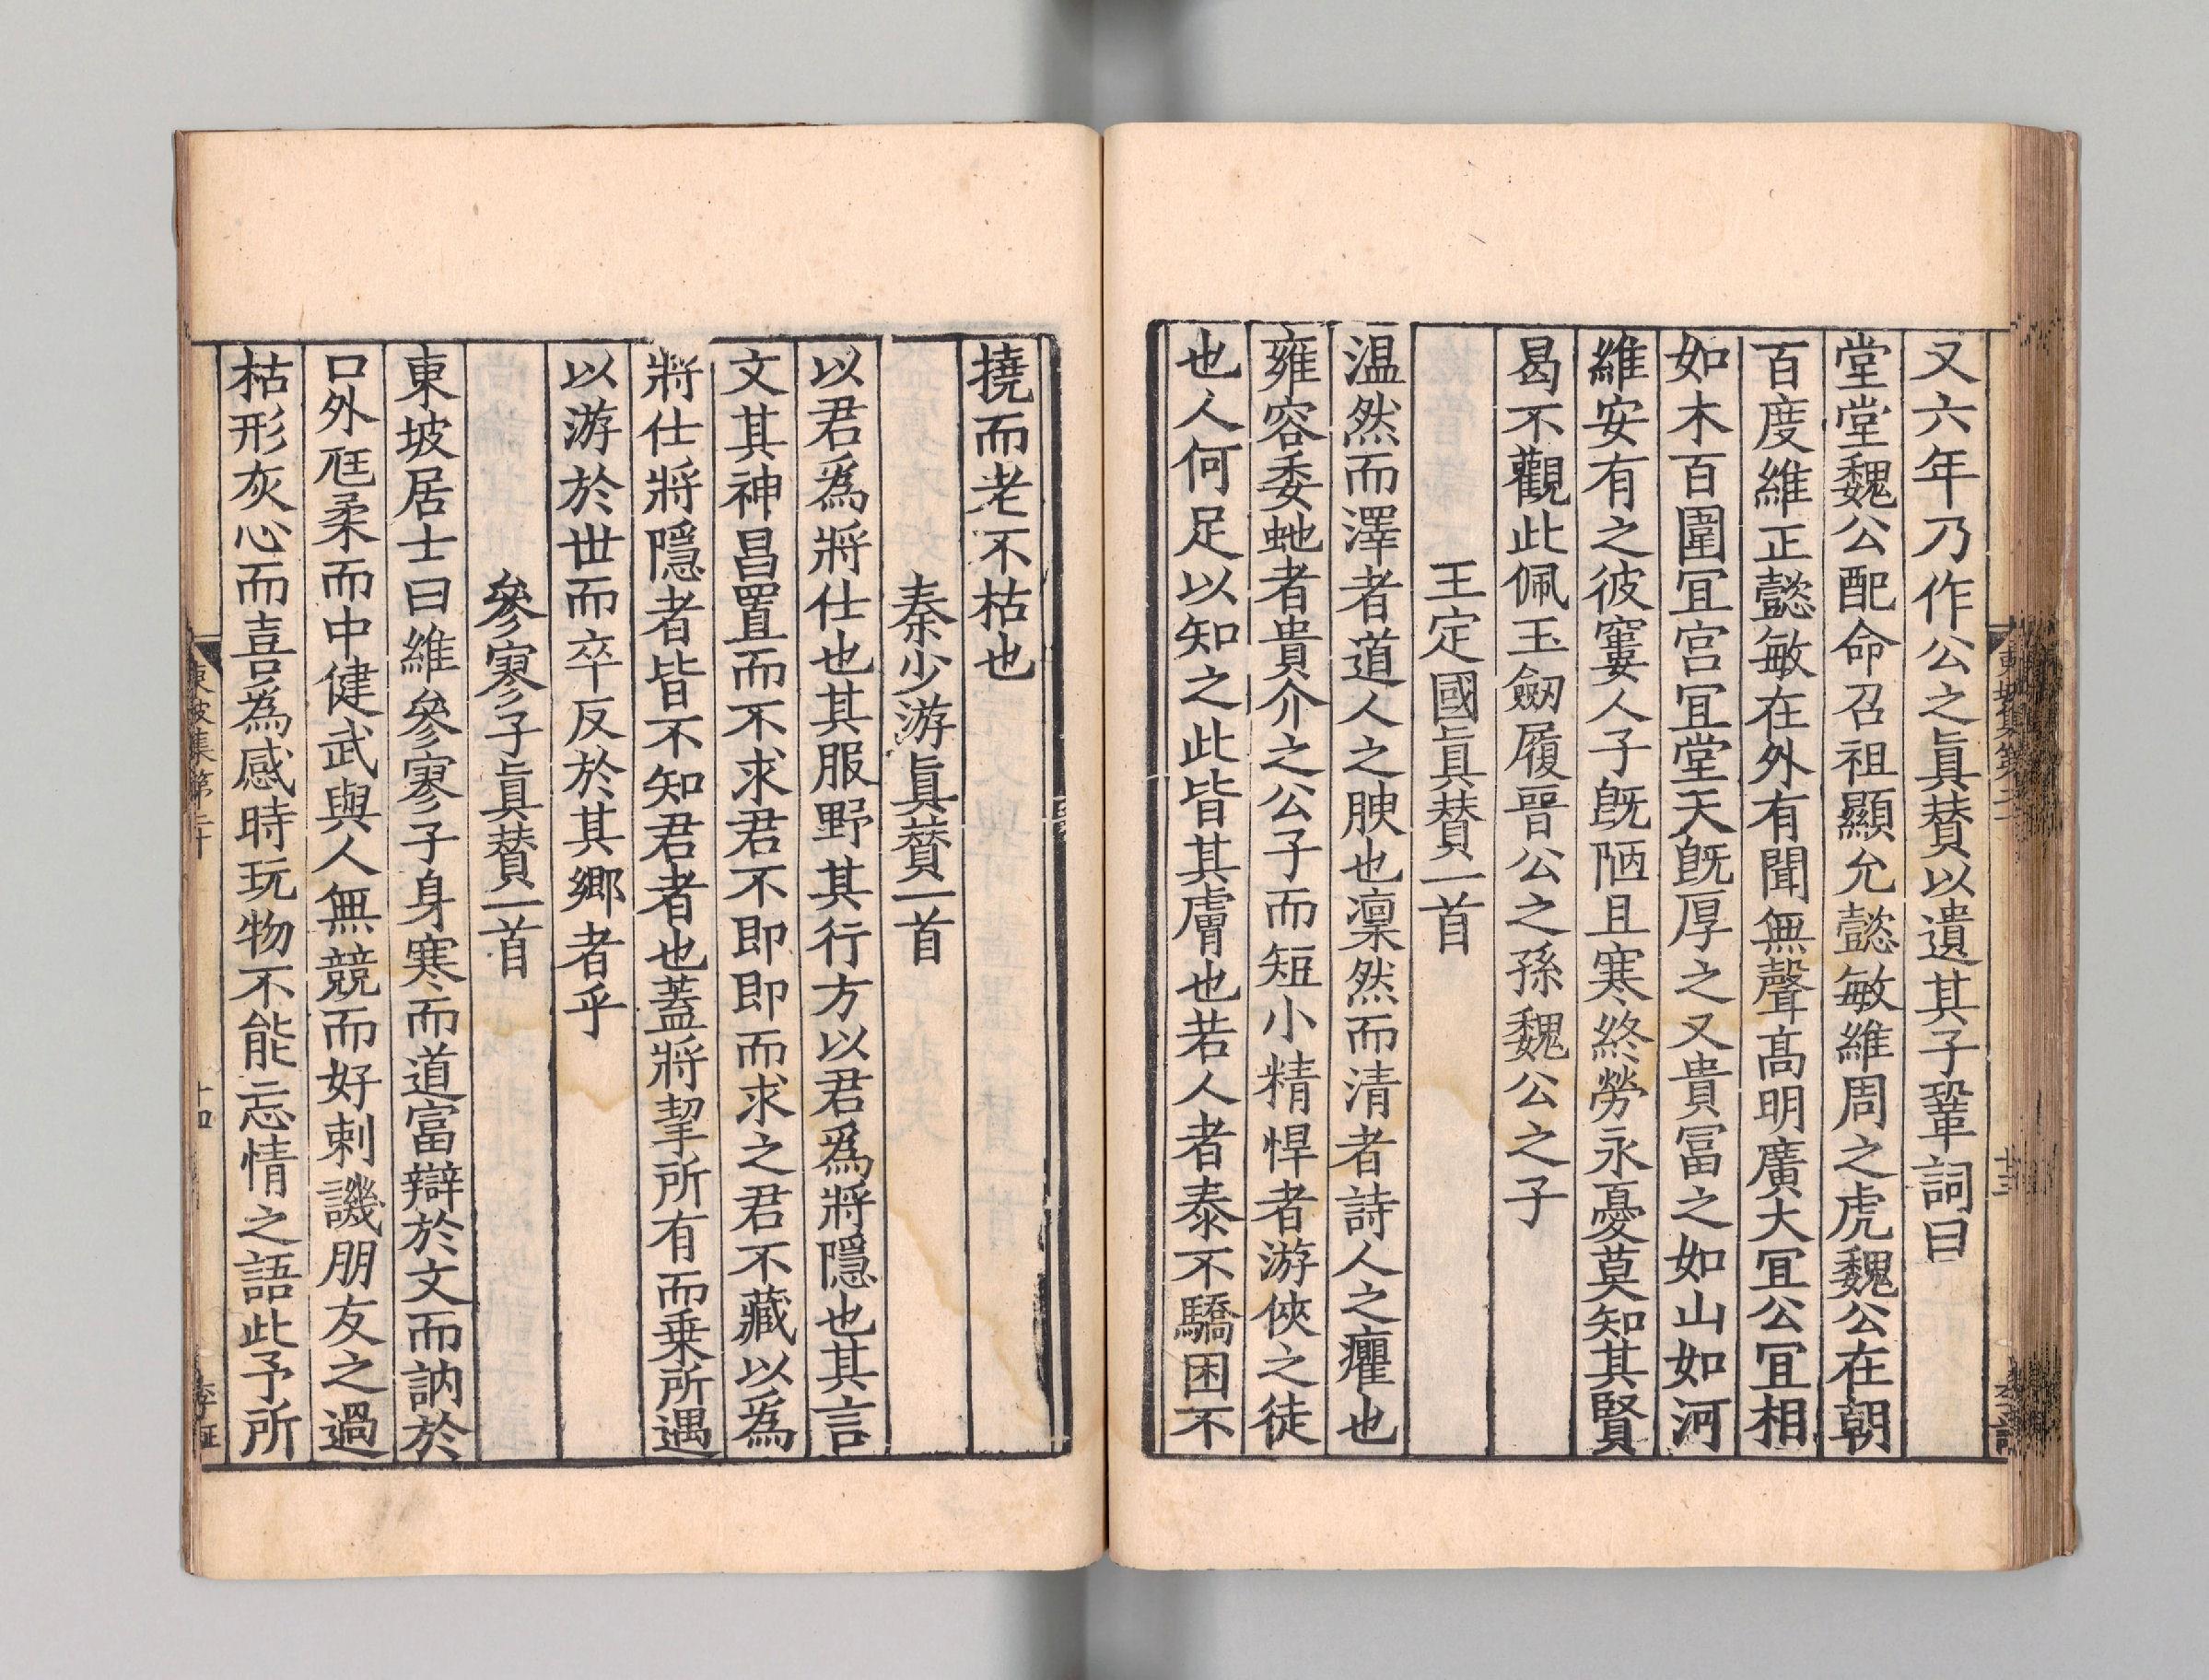 又六年乃作公之眞賛以遺其子鞏詞曰
堂堂魏公配命召祖顯允懿敏維周之虎魏公在朝
百度維正懿敏在外有聞無聲髙明廣大冝公冝相
如木百圍冝宫冝堂天旣厚之又貴冨之如山如河
維安有之彼窶人子旣陋且寒終勞永憂莫知其賢
曷不觀此佩玉劒履晉公之孫魏公之子
王定國眞賛一首
温然而澤者道人之腴也凛然而清者詩人之癯也
雍容委虵者貴介之公子而短小精悍者游俠之徒
也人何足以知之此皆其膚也若人者泰不驕困不
撓而老不枯也
秦少游眞賛一首
以君爲將仕也其服野其行方以君爲將隱也其言
文其神昌置而不求君不即即而求之君不藏以爲
將仕將隱者皆不知君者也蓋將挈所有而乗所遇
以游於世而卒反於其鄉者乎
參寥子眞賛一首
東坡居士曰維參寥子身寒而道富辯於文而訥於
口外尫柔而中健武與人無競而好刺譏朋友之過
枯形灰心而喜為感時玩物不能忘情之語此予所
東坡集第二十
十四